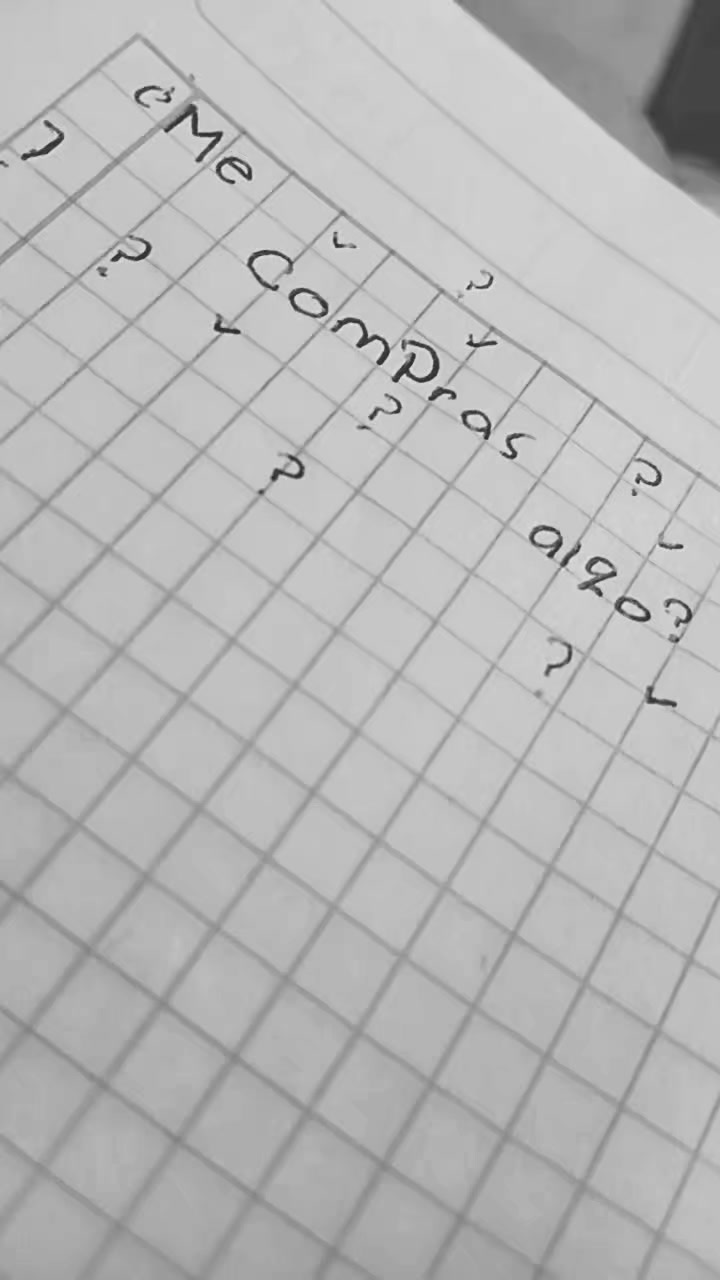 ¿Me compras algo?
?
?
?
?
?
?
?